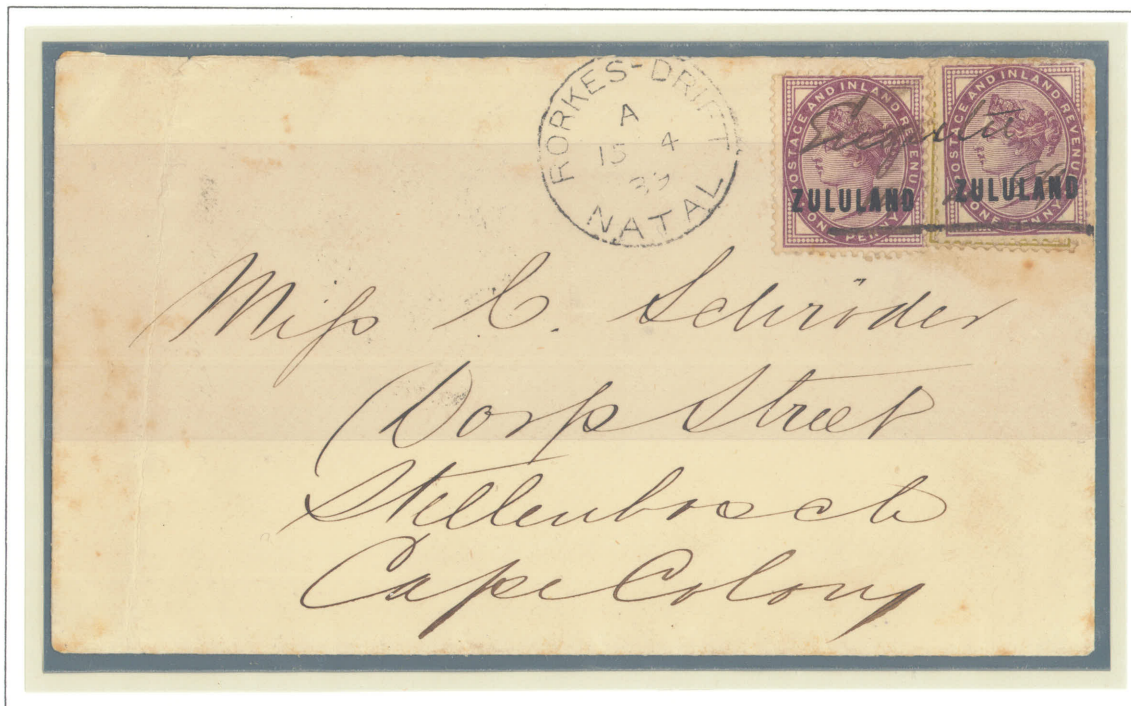 RORKES-DRIFT
A
15 4
89
NATAL
POSTAGE AND INLAND REVENUE
ZULULAND
ONE PENNY
POSTAGE AND INLAND REVENUE
ZULULAND
ONE PENNY
Miſs C. Schröder
Dorp Street
Stellenbosch
Cape Colony